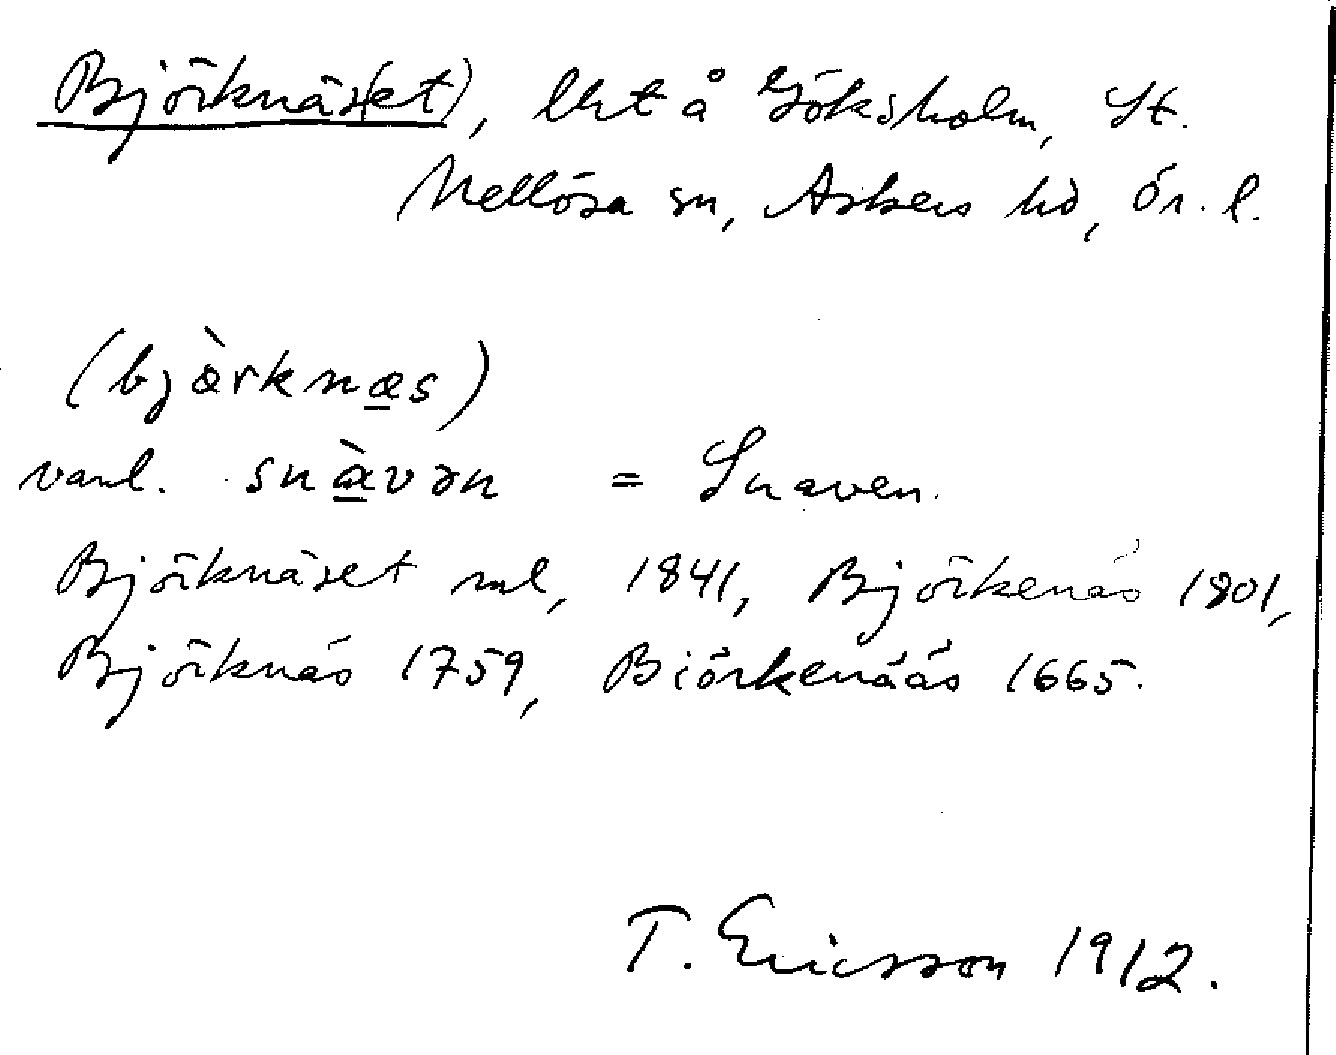 Björknäs(et), lht å Göksholm, St.
Mellösa sn, Askers hd, Ör. l.
(bjæ̀rknæ̲s)
vanl. snà̲vən = Snaven.
Björknäset ml, 1841, Björkenäs 1801,
Björknäs 1759, Biörkenääs 1665.
T. Ericsson 1912.